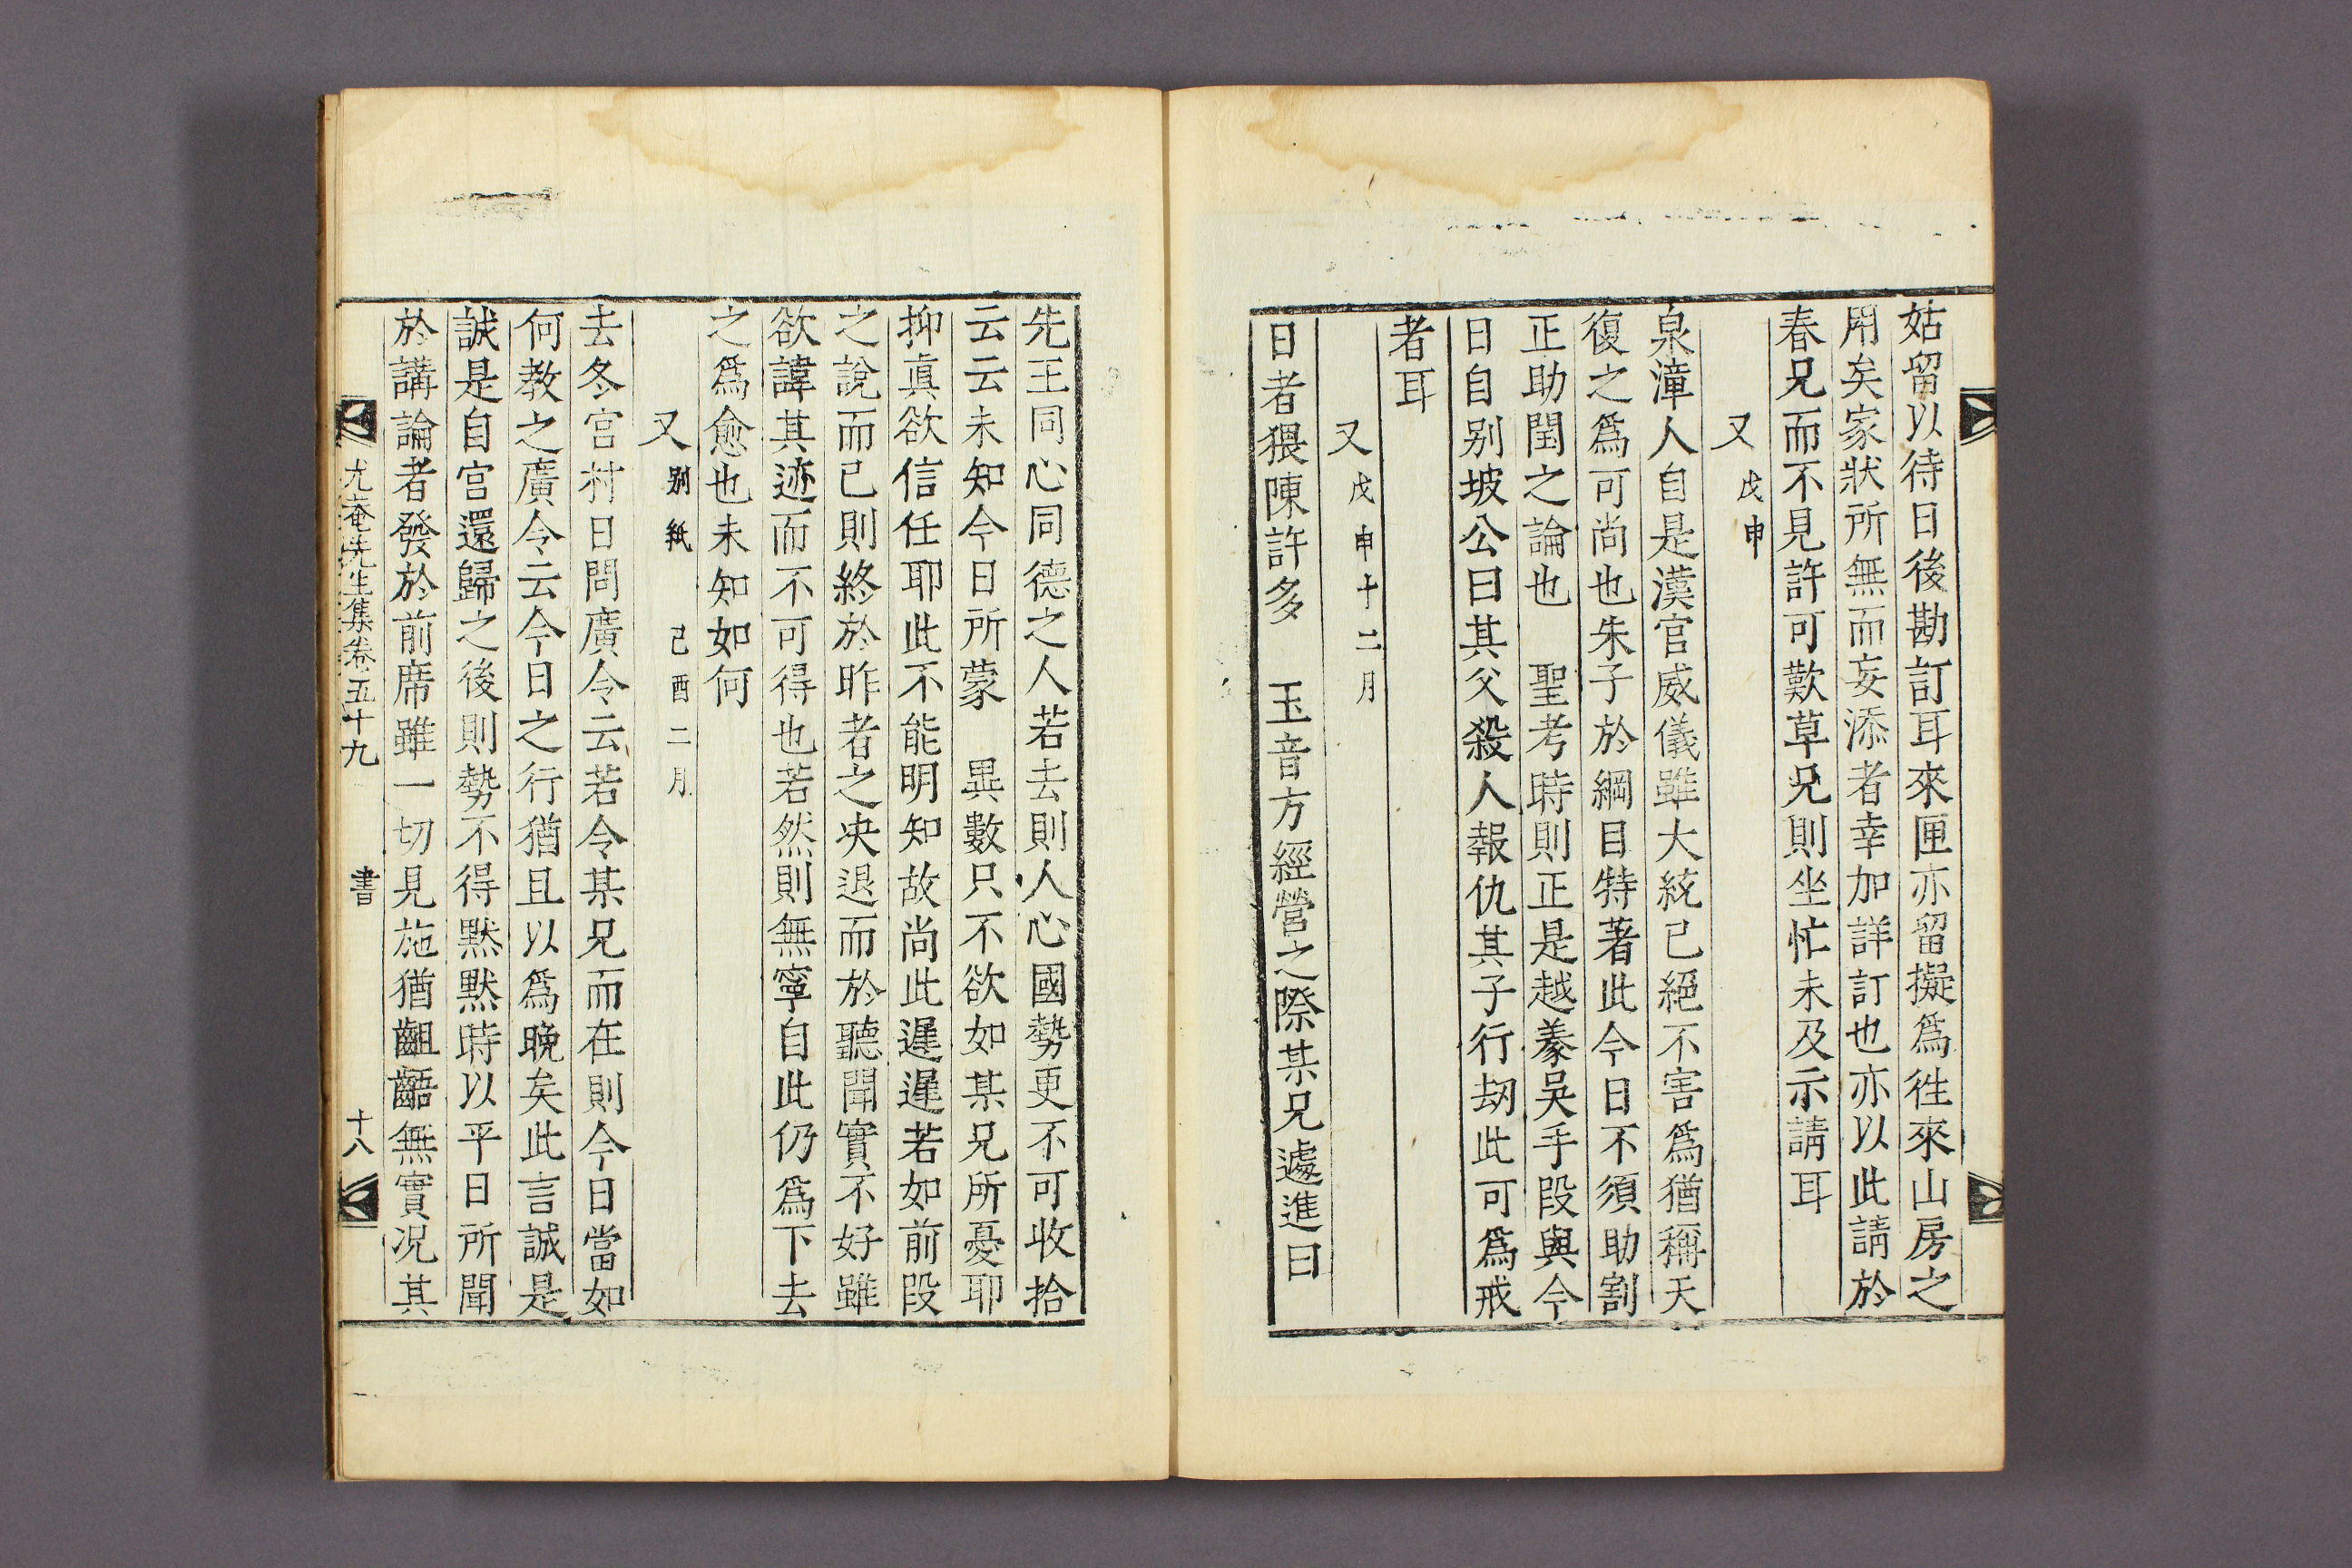 姑留以待日後勘訂耳來匣亦留擬爲徃來山房之
用矣家狀所無而妄添者幸加詳訂也亦以此請於
春兄而不見許可歎草兄則坐忙未及示請耳
又戊申
泉漳人自是漢官威儀雖大統已絕不害爲猶稱天
復之爲可尚也朱子於綱目特著此今日不須助割
正助閏之論也　聖考時則正是越羕吳手段與今
日自別坡公曰其父殺人報仇其子行劫此可爲戒
者耳
又戊申十二月
日者猥陳許多　玉音方經營之際某兄遽進曰
先王同心同德之人若去則人心國勢更不可收拾
云云未知今日所蒙　異數只不欲如某兄所憂耶
抑眞欲信任耶此不能明知故尚此遲遲若如前段
之說而已則終於昨者之決退而於聽聞實不好雖
欲諱其迹而不可得也若然則無寧自此仍爲下去
之爲愈也未知如何
又別紙　己酉二月
去冬宫村日問廣令云若令某兄而在則今日當如
何教之廣令云今日之行猶且以爲晚矣此言誠是
誠是自宫還歸之後則勢不得黙黙時以平日所聞
於講論者發於前席雖一切見施猶齟齬無實況其
尤菴先生集卷五十九　書　十八